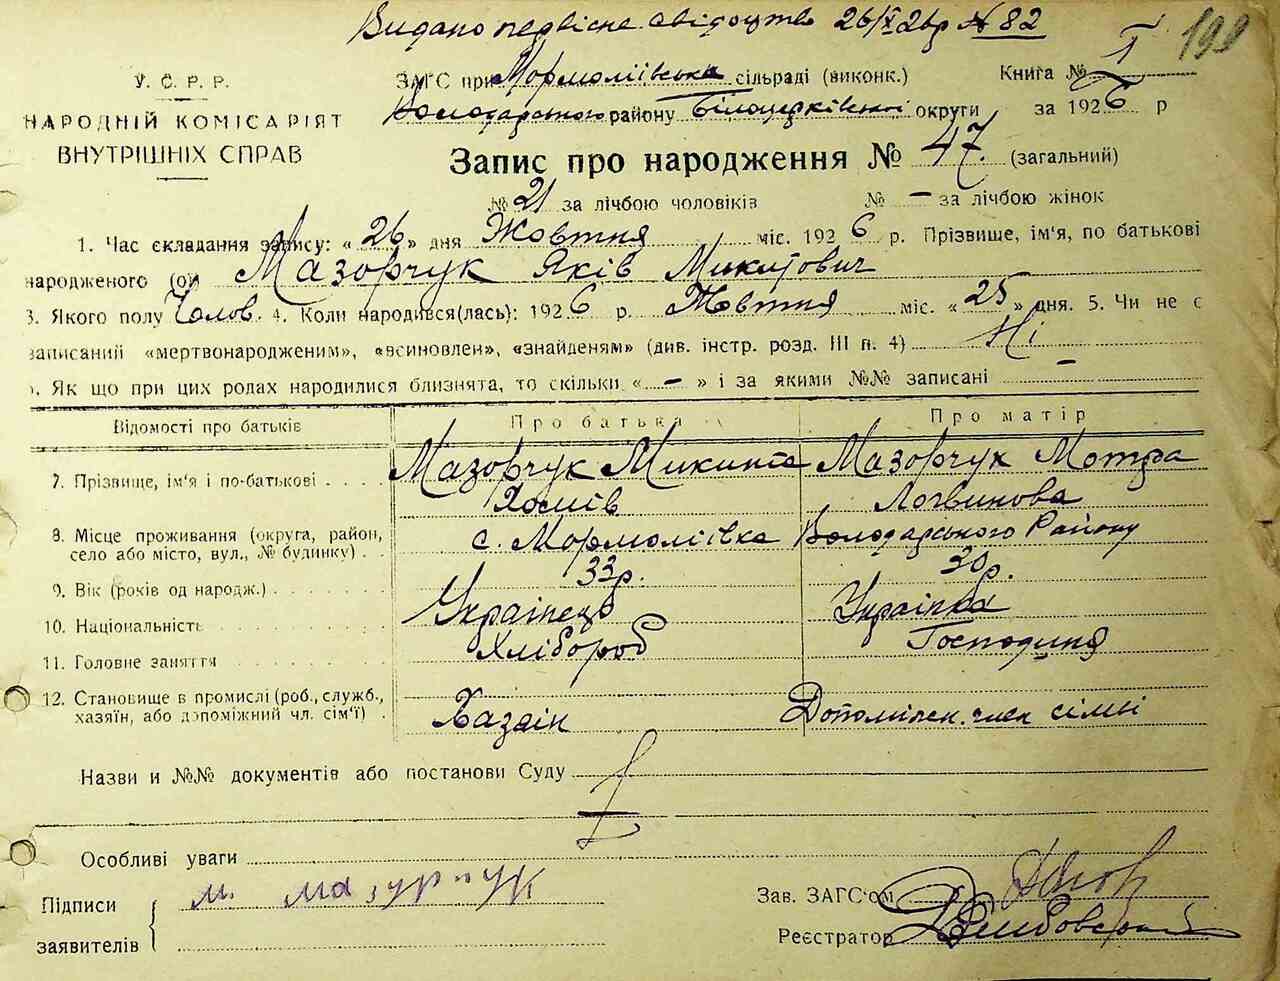 Видано первісне свідоцтво 26/X 26р № 82
199
У.С.Р.Р.
НАРОДНІЙ КОМІСАРІЯТ
ВНУТРІШНІХ СПРАВ
ЗАГС при Мормоліївська сільраді (виконк.)
Книга № I
Володарського району Білоцерківської округи за 1926 р
Запис про народження № 47. (загальний)
№ 21 за лічбою чоловіків № — за лічбою жінок
1. Час складання запису: «26» дня Жовтня міс. 1926 р. Прізвище, ім'я, по батькові
народженого (ої) Мазорчук Яків Микитович
3. Якого полу Чолов. 4. Коли народився(лась): 1926 р. Жовтня міс. «25» дня. 5. Чи не є
записаний «мертвонародженим», «всиновлен», «знайденям» (див. інстр. розд. III п. 4) Ні
6. Як що при цих родах народилися близнята, то скільки « — » і за якими №№ записані —
Відомості про батьків Про батька Про матір
7. Прізвище, ім'я і по-батькові Мазорчук Микита Мазорчук Мотря
Хомів Логвинова
8. Місце проживання (округа, район, село або місто, вул., № будинку) с. Мормоліївка Володарського Району
9. Вік (років од народж.) 33р. 30р.
10. Національність Українець Українка
11. Головне заняття Хлібороб Господиня
12. Становище в промислі (роб., служб., хазяїн, або допоміжний чл. сім'ї) Хазаін Допоміжн. член сімні
Назви и №№ документів або постанови Суду
Особливі уваги
Підписи
заявителів
м. мазурчук
Зав. ЗАГС'ом
Реєстратор